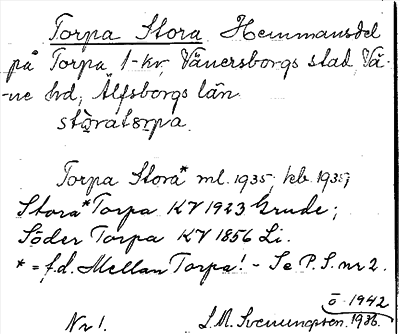 Torpa Stora Hemmansdel
på Torpa 1-kv, Vänersborgs stad, Vä-
-ne hd, Älfsborgs län
stòratɷrpa.
Torpa Stora* ml. 1935; keb. 1935;
Stora* Torpa KV 1923 Grude;
Söder Torpa KV 1856 Li.
* = f.d. Mellan Torpa! - Se P.S. nr 2.
ö 1942
Nr 1. L.M. Svenungsson. 1936.